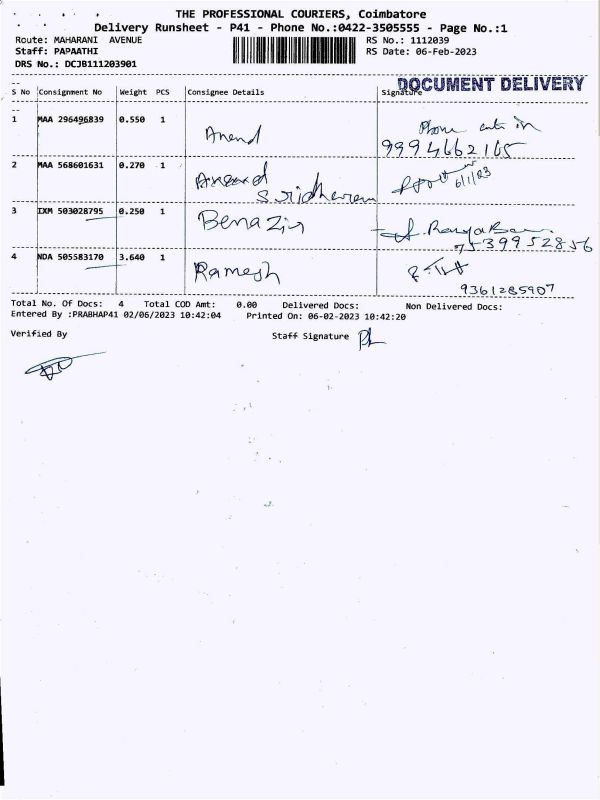 THE PROFESSIONAL COURIERS, Coimbatore
Delivery Runsheet - P41 - Phone No.:0422-3505555 - Page No.:1
Route: MAHARANI AVENUE
RS No.: 1112039
Staff: PAPAATHI
RS Date: 06-Feb-2023
DRS No.: DCJB111203901
DOCUMENT DELIVERY
S No Consignment No Weight PCS Consignee Details Signature
1 MAA 296496839 0.550 1 Anend Phone
9994662165
2 MAA 568601631 0.270 1
S.sridharan 6/1/23
3 IXM 503028795 0.250 1 Benazir
7539952856
4 NDA 505583170 3.640 1 Ramesh
9361285907
Total No. Of Docs: 4 Total COD Amt: 0.00 Delivered Docs: Non Delivered Docs:
Entered By :PRABHAP41 02/06/2023 10:42:04 Printed On: 06-02-2023 10:42:20
Verified By Staff Signature